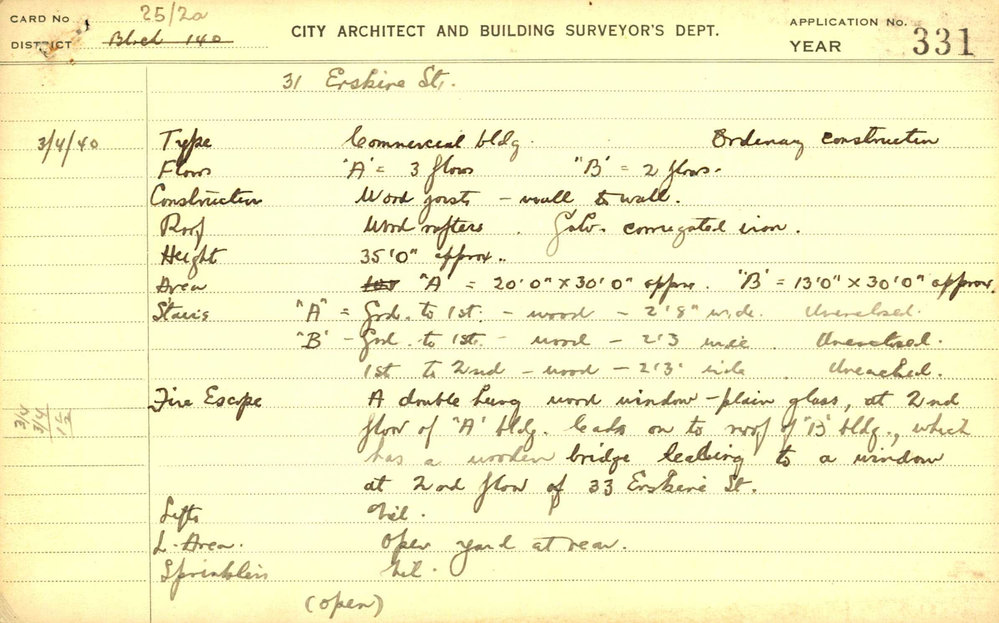 CARD No 25/2a CITY ARCHITECT AND BUILDING SURVEYOR'S DEPT. APPLICATION No.
DISTRICT Block 140 YEAR 331
31 Erskine St.
3/4/40 Type Commercial bldg. Ordinary construction
Floors "A" = 3 floors "B" = 2 floors.
Construction Wood joists - wall to wall.
Roof Wood rafters. Galv. corrugated iron.
Height 35'0" approx.
Area "A" = 20'0" x 30'0" approx. "B" = 13'0" x 30'0" approx.
Stairs "A" = Grd. to 1st. - wood - 2'8" wide. Unenclosed.
"B" - Grd. to 1st. - wood - 2'3 wide. Unenclosed.
1st to 2nd - wood - 2'3" wide. Unenclosed.
Fire Escape A double hung wood window - plain glass, at 2nd
3/4
3/4
floor of "A" bldg. leads on to roof of "B" bldg., which
has a wooden bridge leading to a window
at 2nd floor of 33 Erskine St.
Lifts Nil.
L. Area. Open yard at rear.
Sprinklers Nil.
(open)